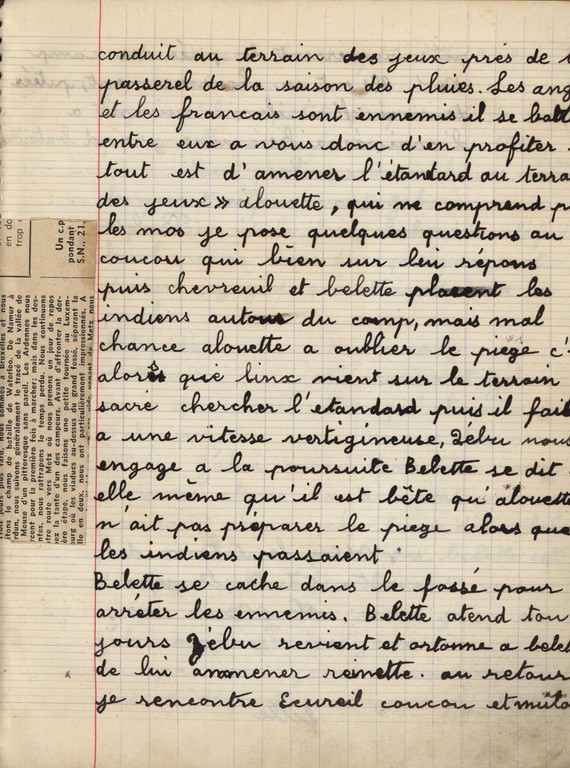 conduit au terrain des jeux prés de
passerel de la saison des pluies. Les ang
et les francais sont ennemis il se bat
entre eux a vous donc d'en profiter
tout est d'amener l'étandard au terra
des jeux» alouette, qui ne comprend p
les mos je pose quelques questions au
coucou qui bien sur leu répons
puis chevreuil et belette placent les
indiens autour du camp, mais mal
chance alouette a oublier le piege c'
alors que linx vient sur le terrain
sacré chercher l'etandard puis il fait
a une vitesse vertigineuse, Zébu nous
engage a la poursuite Belette se dit
elle même qu'il est bête qu'alouette
n'ait pas préparer le piege alors que
les indiens passaient.
Belette se cache dans le fossé pour
arréter les ennemis. Belette atend tou
jours Zebu revient et ortonne a belet
de lui ammener reinette. au retour
je rencontre Ecureil coucou et
en do
trop
Un c.p
pondant
S.N., 21,
sommes à Bruxelles et nous
itons le champ de bataille de Waterloo. De Namur à
nous suivons généralement le tracé de la vallée de
Meuse d'un pittoresque sans pareil. Les Ardennes nous
cent pour la première fois à marcher, mais dans les des-
ntes, nous rattrapons le temps perdu. Nous continuons
tre route vers Metz où nous prenons un jour de repos
ez la tante d'un des campeurs. Avant d'affronter la der-
ère étape, nous faisons une petite tournée au Luxem-
urg où les viaducs au-dessus du grand fossé, séparant la
lle en deux, nous ont particulièrement impressionnés. A
de Metz nous